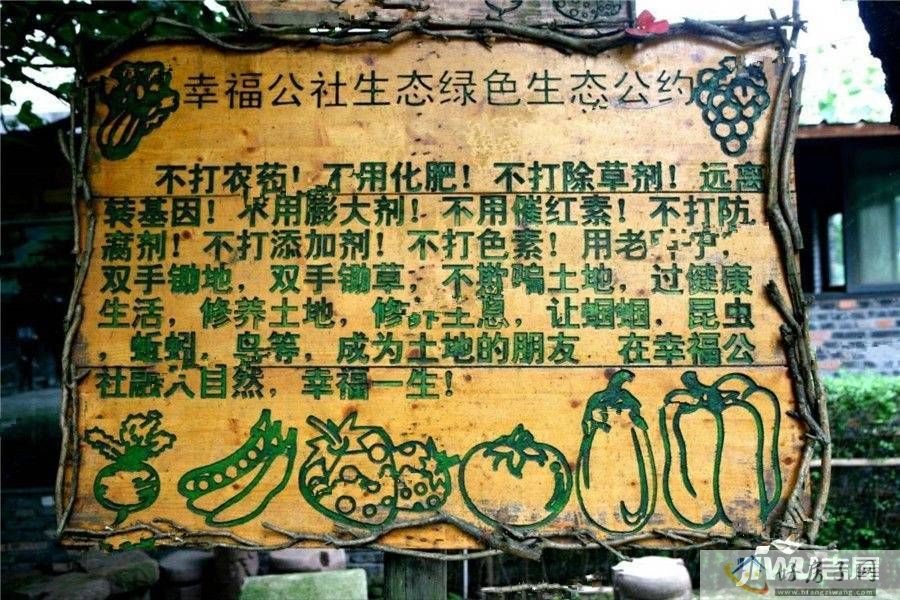 幸福公社生态绿色生态公约
不打农药！不用化肥！不打除草剂！远离
转基因！不用膨大剂！不用催红素！不打防
腐剂！不打添加剂！不打色素！用老
双手锄地，双手锄草，不欺骗土地，过健康
生活，修养土地，修 生息，让蝈蝈，昆虫
，蚯蚓，鸟等，成为土地的朋友 在幸福公
社融入自然，幸福一生！
吉屋
好房子哩
www.hfangziwang.com